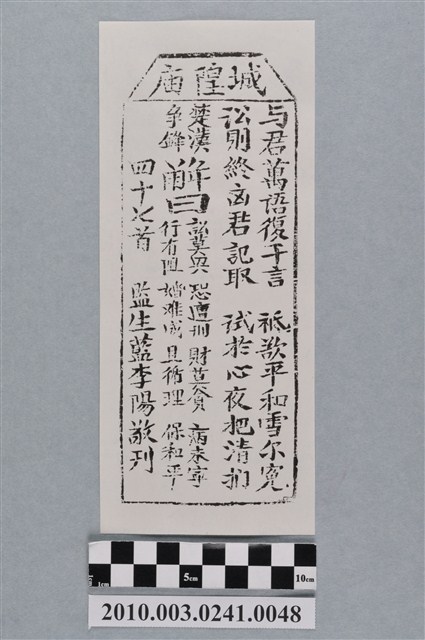 城隍庙
与君萬语復千言 祗欲平和雪尔寃
訟則終凶君記取 試於心夜把清捫
楚漢
争鋒
解曰
訟莫興 恐遭刑 財莫貪 病未寧
行有阻 婚难成 且循理 保和平
四十七首 監生藍李陽敬刊
1cm 5cm 10cm
2010.003.0241.0048